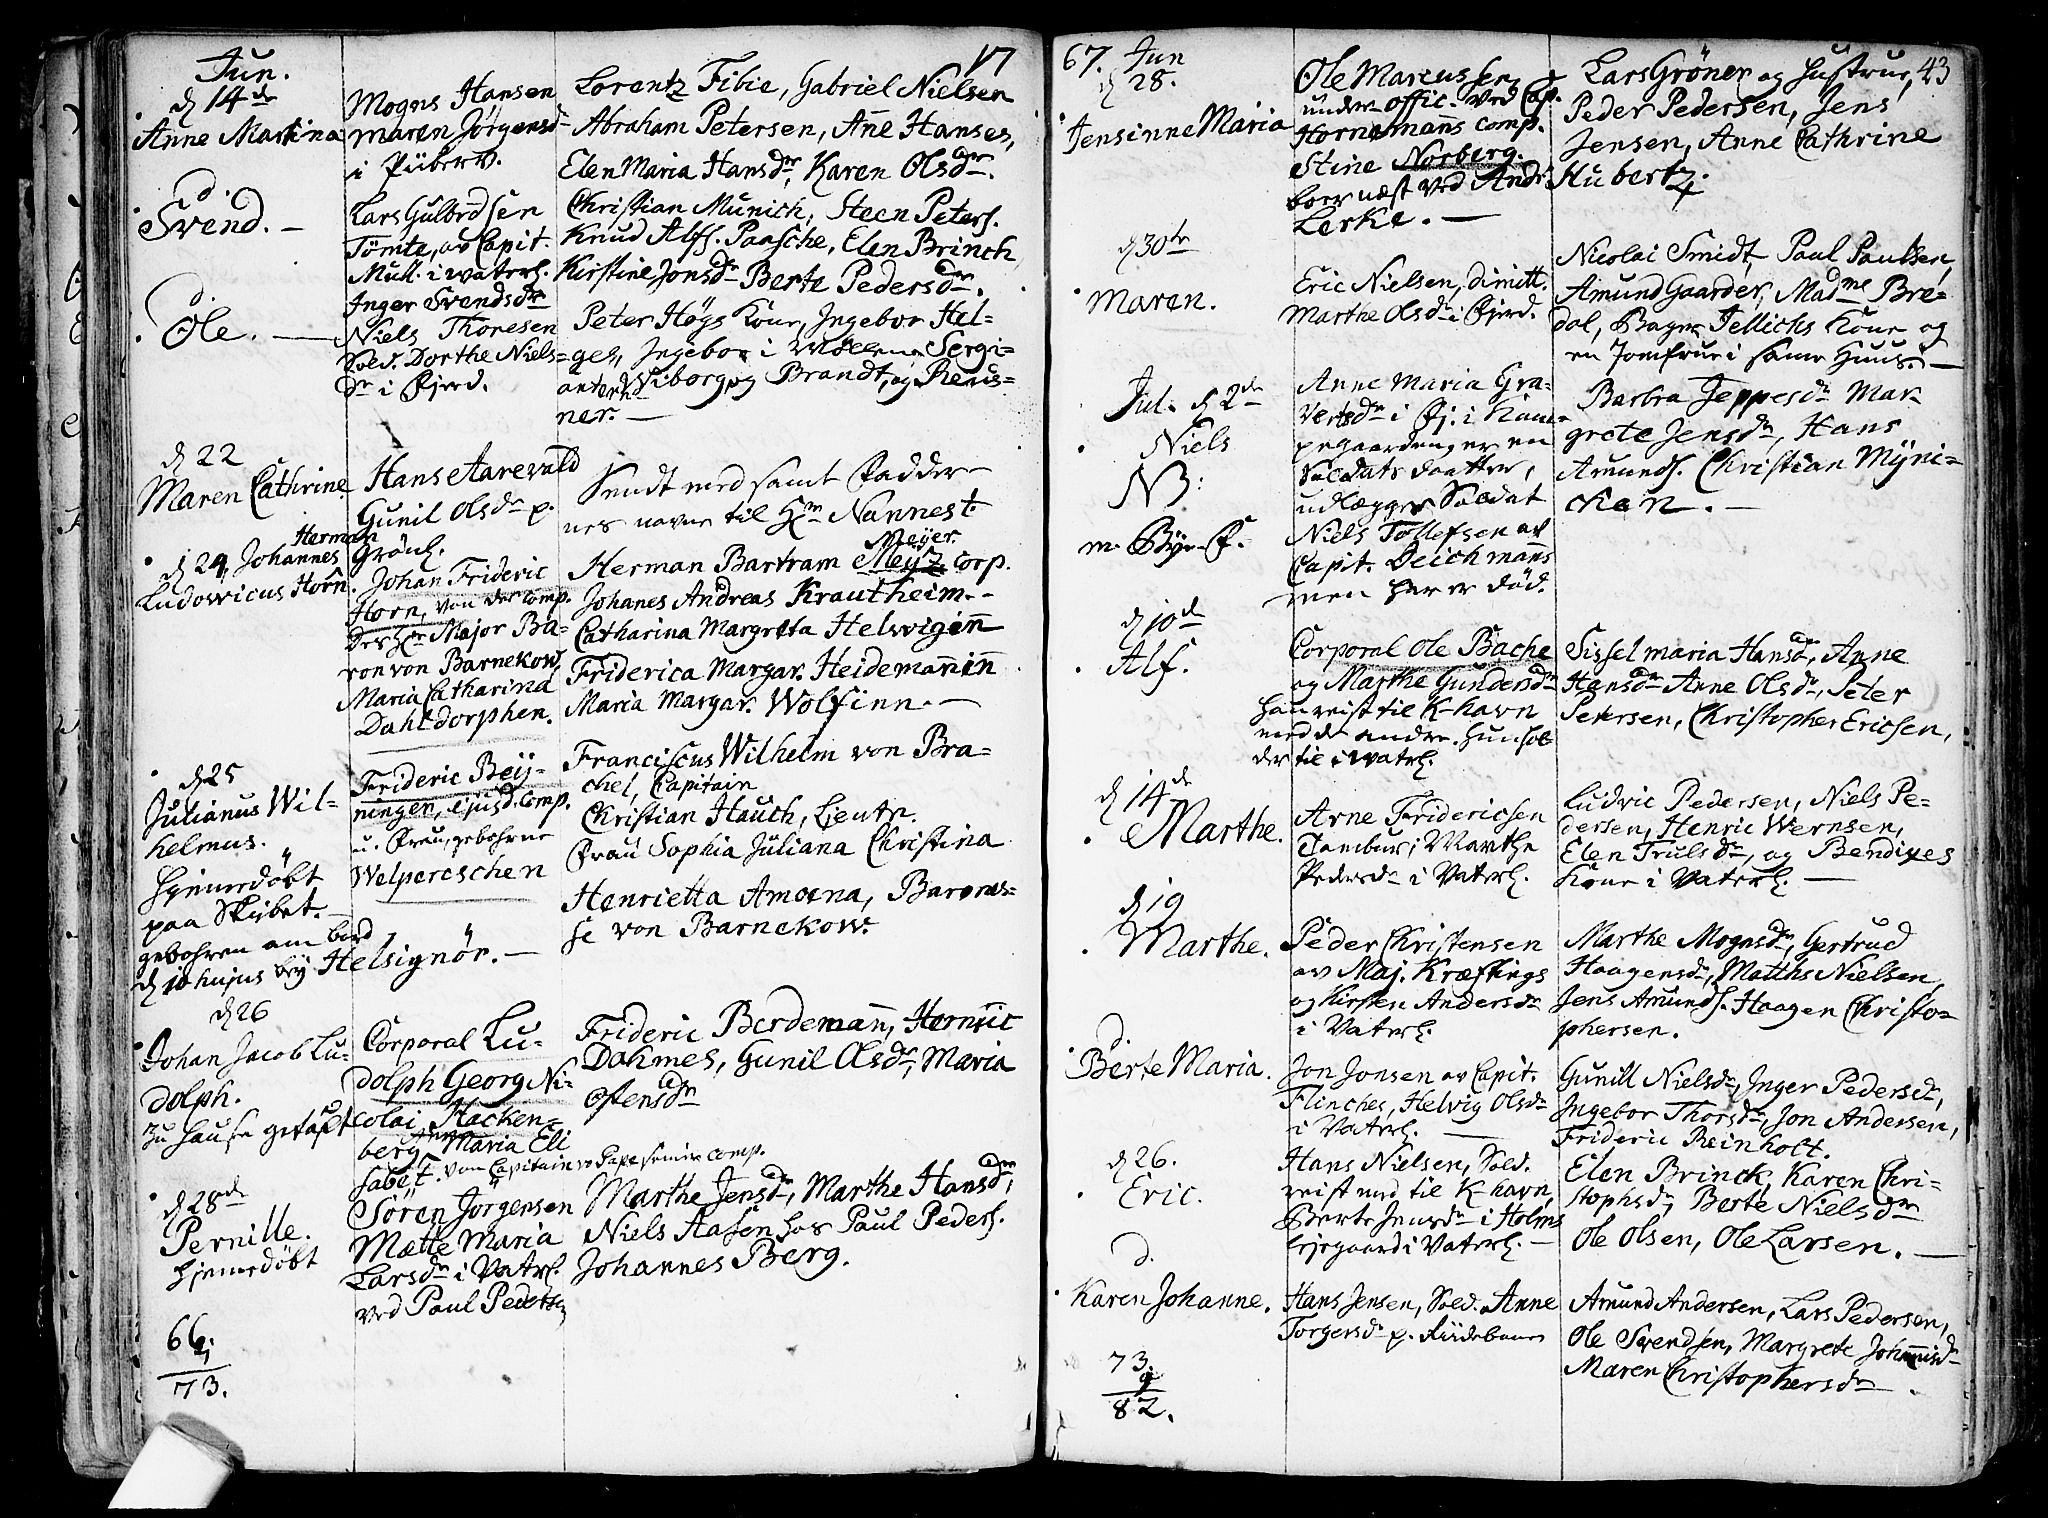 Jun.
17
d 14de
Anne Martina
Mogns Hansen
Maren Jørgensd
i Piberv.
Lorentz Fibie, Gabriel Nielsen
Abraham Petersen, Añe Hanses,
Elen Maria Hansdr, Karen Olsdr.
d.
Svend. –
Lars Gulbrdsen
Tömte, av Capit.
Mull. i Vaterl.
Inger Svendsdr
Christian Munich, Steen Peters.
Knud Alfs. Paasche, Elen Brinch
Kirstine Jonsdr Berte Pedersdr.
d.
Ole. –
Niels Thoresen
Sold. Dorthe Niels=
dr i Fjerd.
Peter Høgs Kone, Ingebor Hel-
ges, Ingebor i Møllen Sergi-
anterne Wiborg og Brandt, og Reus=
ner. –
d 22
Maren Cathrine
Hans Aarevald
Gunil Olsdr p.
Grönl.
Sendt med samt Fadder-
nes navne til Hr Nannest.
d 24 Johannes Herman
Ludovicus Horn.
Johan Frideric
Horn, von der comp.
des Hr Major Ba-
ron von Barnekow,
Maria Catharina
Dahldorphen.
Meyer.
Herman Bartram Meyz. Corp.
Johanes Andreas Krautheim.-
Catharina Margreta Helwigiñ
Friderica Margar. Heidemañiñ
Maria Margar. Wolfinn. –
d 25
Julianus Wil-
helmus.
hjemmedøbt
paa Skibet.
gebohren am bord
d 10 hujus bey Helsignör. –
Frideric Beij-
ningen, ejusd. comp.
u. Frau, gebohrne
Welpereschen
Franciscus Wilhelm von Bra-
chel, Capitain
Christian Hauch, Lieutn.
Frau Sophia Juliana Christina
Henrietta Amoena, Barones=
se von Barnekow.
d 26
Johan Jacob Lu-
dolph.
Zu hause getauft
Corporal Lu-
dolph Georg Ni-
colai Hacken-
berg Anna Maria Eli
sabet. vom Capitain Pape seine comp.
Frideric Berdemañ, Henric
Dahmes, Gunil Olsdr, Maria
Ostensdr
d 28de
Pernille.
hjemmedøbt
Sören Jørgensen
Mætte Maria
Larsdr i Vaterl.
ved Paul Pedersen
Marthe Jensdr, Marthe Hansdr,
Niels Aasen hos Paul Peders.
Johannes Berg.
66
7
73.
67. Jun
43
d 28.
Jensinne Maria
Ole Marcussen
under offic. ved Cap.
Hornemañs comp.
Stine Norberg.
boer næst ved Andr.
Lerke. –
Lars Gröner og Hustrue,
Peder Pedersen, Jens
Jensen, Anne Cathrine
Hubertz.
d 30te
Maren.
Eric Nielsen, dimitt.
Marthe Olsdr i Fjerd.
Nicolai Smidt, Paul Paulsen,
Amund Gaarder, Madme Bre-
dal, Bager Jellichs Kone og
en Jomfrue i same Huus. –
Jul. d 2de
Niels
NB:
Anne Maria Gra-
vertsdr i Fj. i Kam-
pegaarden, er en
Soldats daatter,
udlægger Soldat
Niels Tollefsen av
Capit. Deichmañs
men han er död.
Barbra Jeppesdr Mar-
grete Jensdr, Hans
Amunds. Christian Myni-
chen. –
d 10de
Alf.
Corporal Ole Bache
og Marthe Gundersdr
han reist til K-havn
med de andre. Hun hol
der til i Vaterl.
Sissel maria Hansdr, Anne
Hansdr Anne Olsdr, Peter
Petersen, Christopher Ericsen,
d 14de
Marthe.
Arne Fridericsen
Tambur, Marthe
Pedersdr i Vaterl.
Ludvic Pedersen, Niels Pe-
dersen, Henric Wernsen,
Elen Trulsdr, og Bendixes
Kone i Vaterl. –
d 19
Marthe.
Peder Christensen
av Maj. Kræftings
og Kirsten Andersdr
i Vaterl.
Marthe Mognsdr, Gertrud
Haagensdr, Matths Nielsen,
Jens Amunds. Haagen Christo-
phersen.
d.
Berte Maria.
Jon Jonsen av Capit.
Flinches, Helvig Olsdr
i Vaterl. –
Gunill Nielsdr, Inger Pedersdr,
Ingebor Thorsdr, Jon Andersen,
Frideric Reinholt.
d 26.
Eric.
Hans Nielsen, Sold.
reist med til K-havn,
Berte Jensdr i Holms
leyegaard i Vaterl. –
Elen Brinck, Karen Chri-
stophsdr, Berte Nielsdr
Ole Olsen, Ole Larsen. –
d.
Karen Johanne.
Hans Jensen, Sold. Anne
Torgersdr p. Ridebanen
Amund Andersen, Lars Pedersen,
Ole Svendsen, Margrete Johannisdr
Maren Christophersdr.
73
9
82.